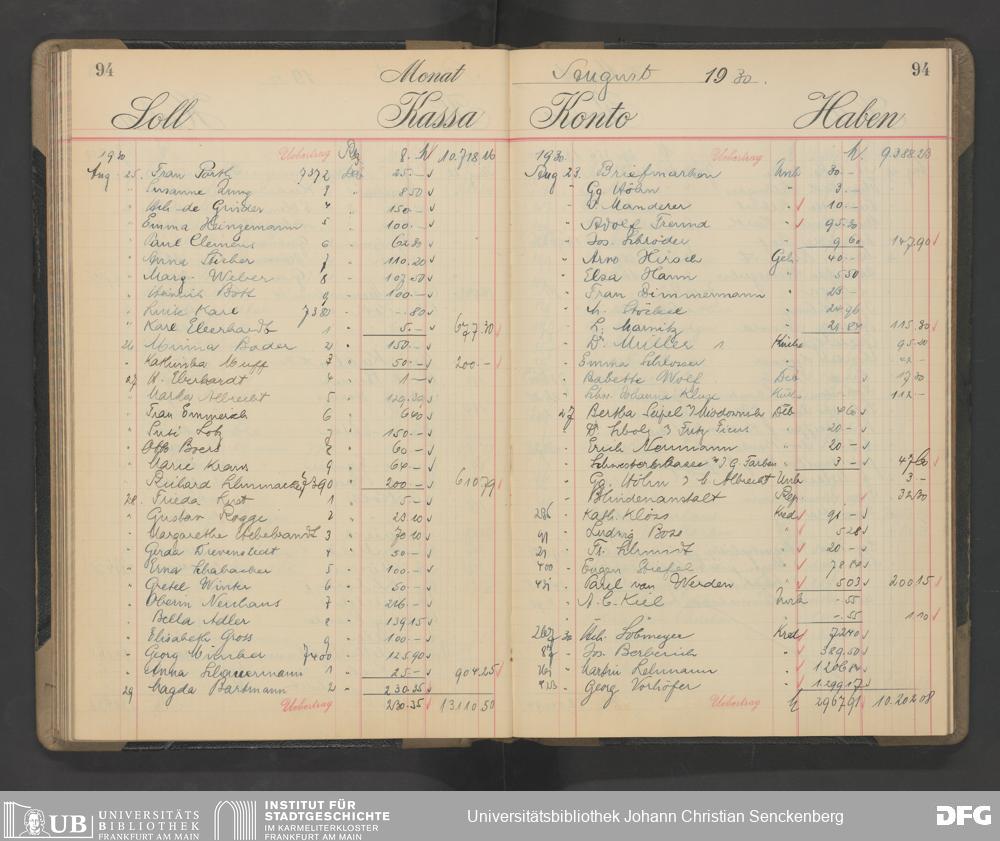 94
Monat
Soll
Kassa
1930
Uebertrag
10.718.16
Aug 25. Frau Porth 7372 25.-
" Susanne Jung 3 8.50
" Wilh. de Grinder 4 150.-
" Emma Heinzemann 5 100.-
" Paul Clemens 6
" Anna Sticher 7 110.20
" Marg. Weber 8 107.50
" Heinrich Bott 9 100.-
" Karl 7380 -.80
" Karl Eberhardt 1 5.- 677.30
26 Minna Bader 2 150.-
" Katharina Muff 3 50.- 200.-
27 H. Eberhardt 4 1.-
" Marka Albrecht 5 129.39
" Frau Emmerich 6 6.40
" Susi Lotz 7 150.-
" Otto Boers 8 60.-
" Marie Kraus 9 64.-
" Richard Schumacher 7390 200.- 610.79
28. Frieda Kirst 1 5.-
" Gustav Rogge 2 23.10
" Margarethe 3 70.10
" Gerda Dievenstedt 4 50.-
" Erna Schabacker 5 100.-
" Gretel Winter 6 50.-
" Oberin Neuhaus 7 246.-
" Bella Adler 8 139.15
" Elisabeth Gross 9 100.-
" Georg Wünscher 7400 125.90
" Anna Schauermann 1 25.- 904.25
29 Magda Bartmann 2 230.35
Uebertrag 230.35 13.110.50
94
August 1930.
Konto
Haben
1930
Uebertrag
9.388.23
Aug 23. Briefmarken Unk 30.-
" Gg Höhn " 3.-
" V. Manderer " 10.-
" Adolf Freund " 95.30
" Jos. Schröder " 9.60 147.90
" Arno Hirsch Geh. 40.-
" Elsa Hann " 5.50
" Frau Dimmermann " 23.-
" Stöckel " 24.96
" L. Marnitz " 21.84 115.30
" Dr. Müller Küche 95.20
" Emma Schlosser "
" Babette Wolf Deb 17.30
" Schw. Johanna Kluge 112.-
27 Bertha Seipel Deb 4.60
" Fritz Ficus " 20.-
" Erich Neumann " 20.-
" Schwesternkasse J. G. Farben " 3.- 47.60
" Gg. Höhn Albrecht Unk 3.-
" Blindenanstalt Rep. 32.30
286 " Kath. Klöss Kred 91.-
91 " Ludwig Boss " 5.28
21 " Fr. Schmidt " 20.-
400 " Eugen Striefel " 78.84
421 " Paul van Werden " 5.03 200.15
" A. C. Kiel Unk -.55
" -.55 1.10
267 30 Wilh. Löbmeyer Kred 72.40
87 " Jos. Berberich " 329.50
761 " Martin Rehmann " 1.206.84
423 " Georg Vorhöfer " 1.299.17
Uebertrag 2967.91 10.202.08
UB UNIVERSITÄTS
BIBLIOTHEK
FRANKFURT AM MAIN
INSTITUT FÜR
STADTGESCHICHTE
IM KARMELITERKLOSTER
FRANKFURT AM MAIN
Universitätsbibliothek Johann Christian Senckenberg
DFG